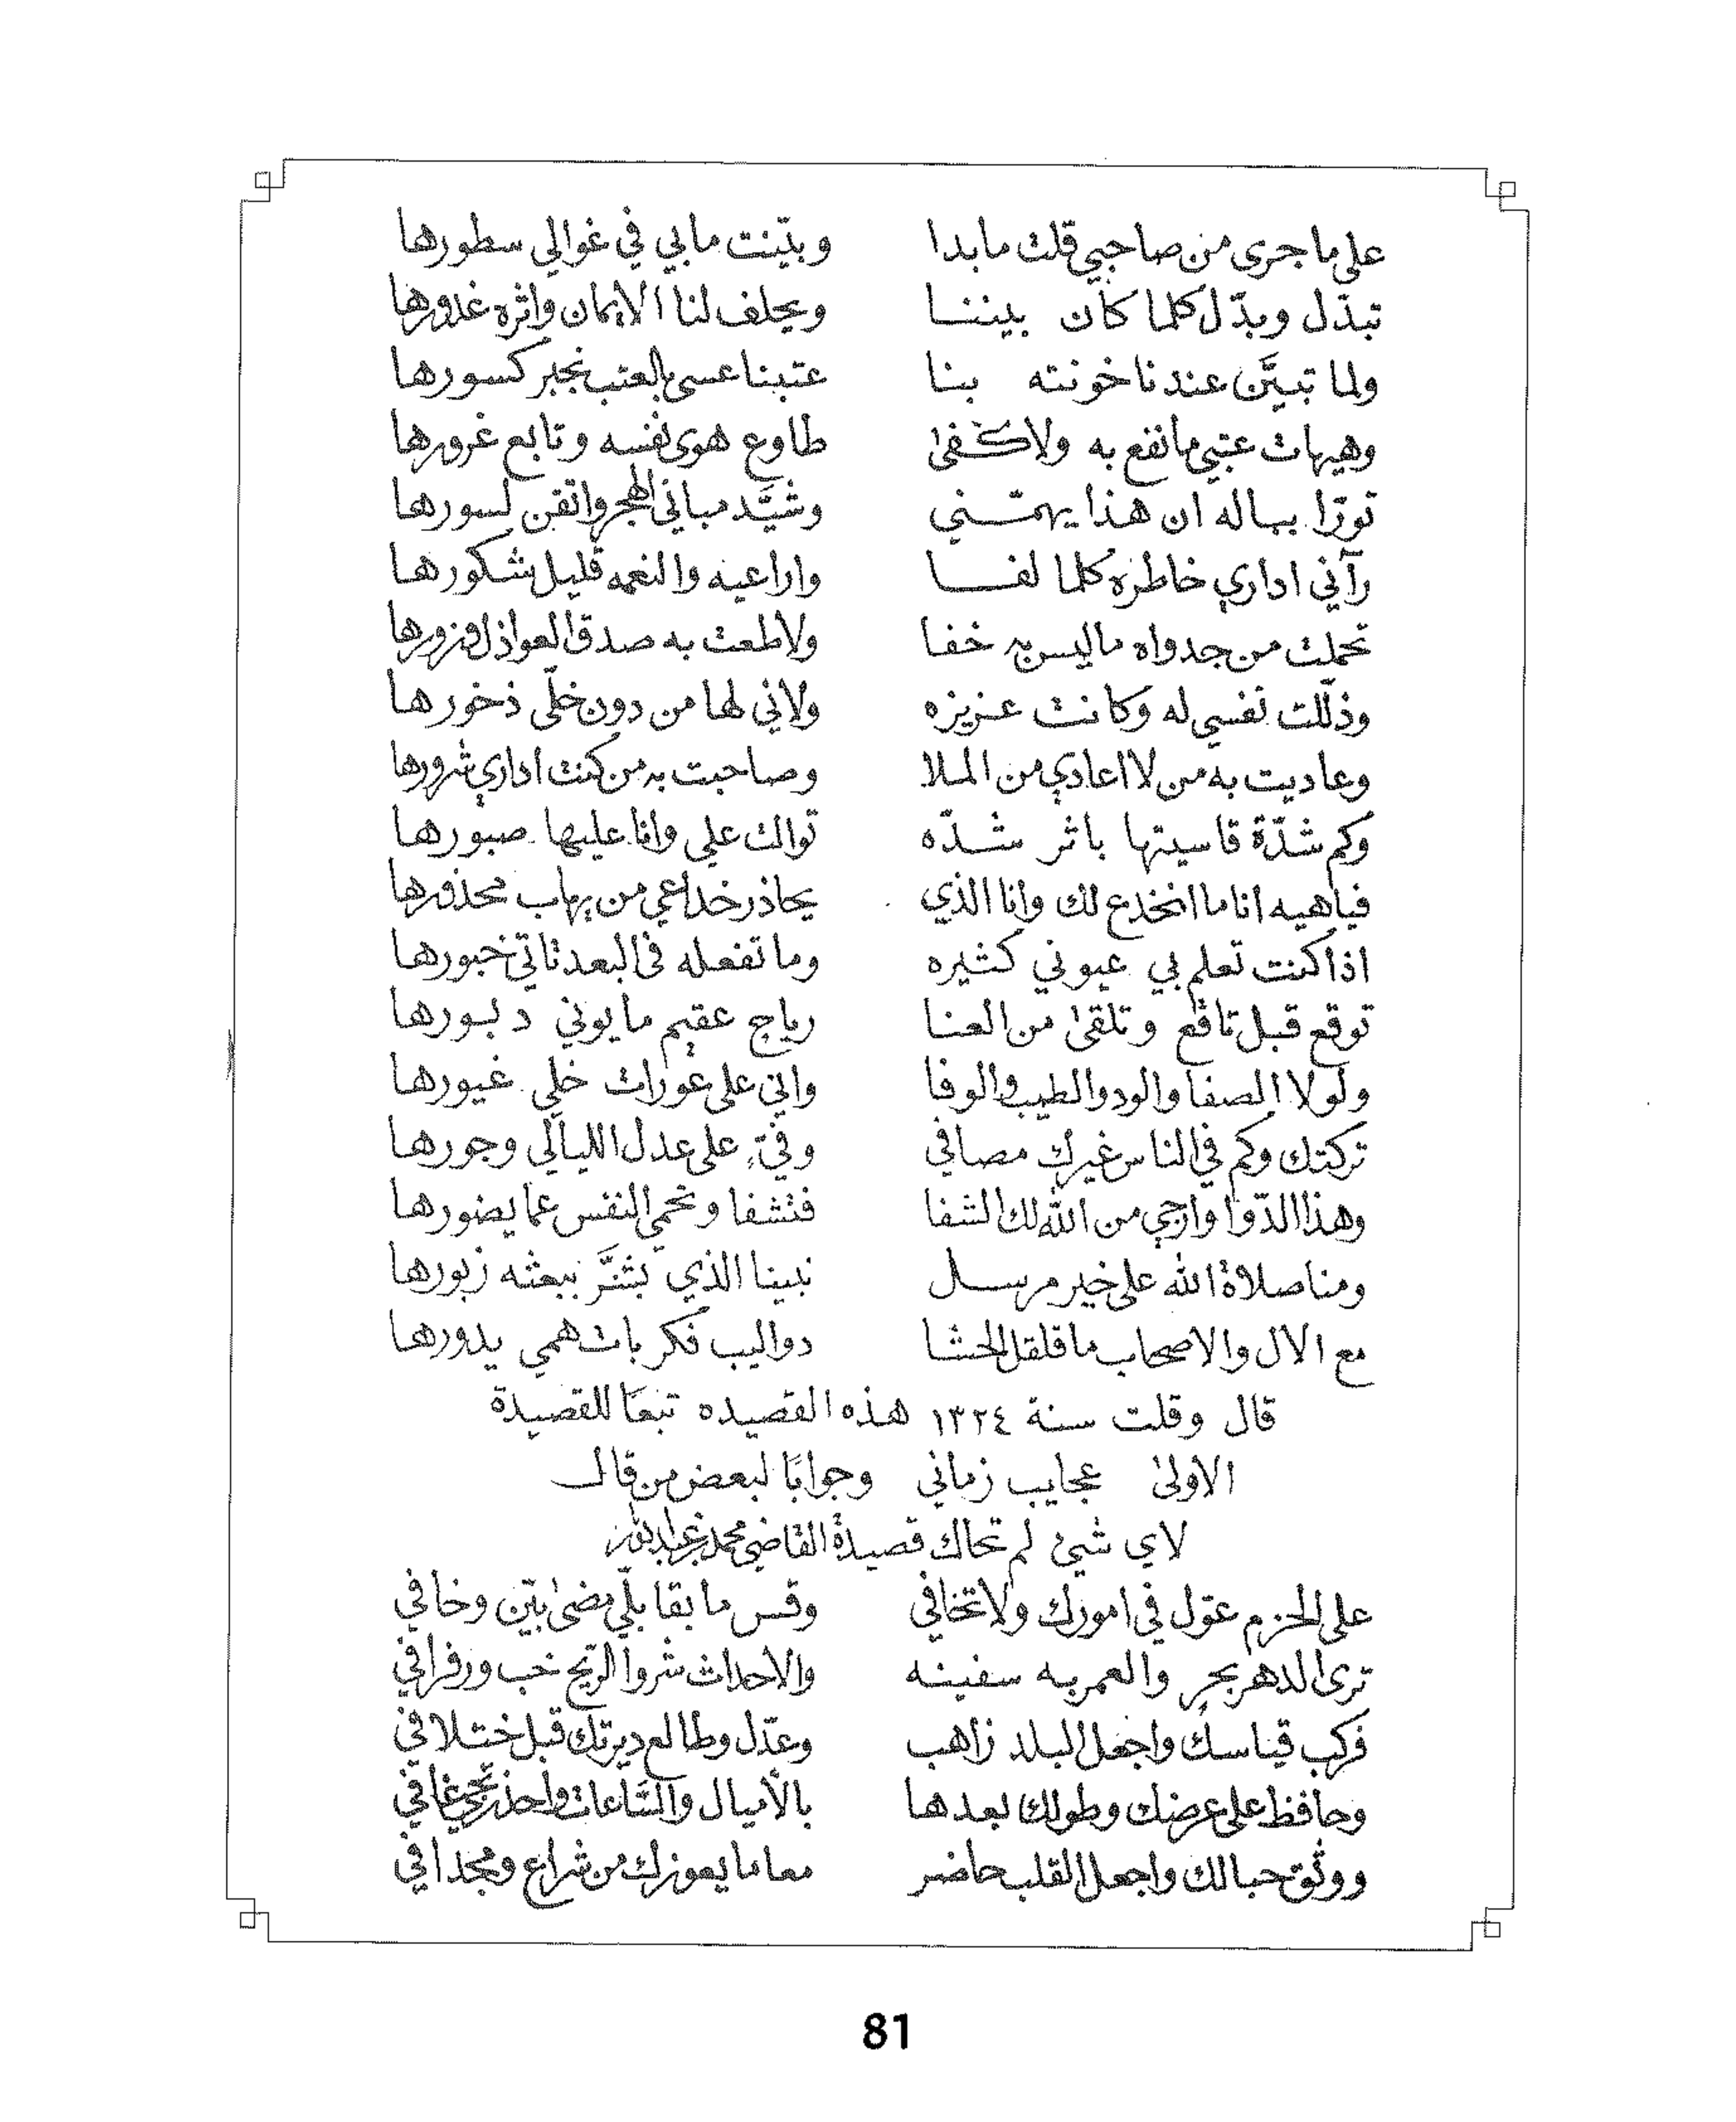 على ما جرى من صاحبي قلت ما بدا وبيّنت ما بي في غوالي سطورها
تبدّل وبدّل كلما كان بيننا ويحلف لنا الايمان واثره غدورها
ولما تبيَّن عندنا خونته بنا عتبنا عسى بالعتب نجبر كسورها
وهيهات عتبي ما نفع به ولا كفىٰ طاوع هوى نفسه وتابع غرورها
تورّا بباله ان هذا يهمّني وشيَّد مباني الهجر واتقن لسورها
رآني اداري خاطره كلما لفا واراعيه والنعمه قليل شكورها
تحملت من جدواه ما ليس به خفا ولا طعت به صدق العواذل وزورها
وذلّلت نفسي له وكانت عزيزه ولاني لها من دون خلّي ذخورها
وعاديت به من لا اعادي من الملا وصاحبت به من كنت اداري شرورها
وكم شدّة قاسيتها باثر شدّه توالت علي وانا عليها صبورها
فياهيه انا ما انخدع لك وانا الذي يحاذر خداعي من يهاب محذورها
اذا كنت تعلم بي عيوني كثيره وما تفعله في البعد تاتي خبورها
توقع قبل تاقع وتلقىٰ من العنا رياح عقيم ما يوني دبورها
ولولا الصفا والود والطيب والوفا واني على عورات خلي غيورها
تركتك وكم في الناس غيرك مصافي وفيّ على عدل الليالي وجورها
وهذا الدّوا وارجي من الله لك الشفا فتشفا وتحمي النفس عما يضورها
ومنا صلاة الله على خير مرسل نبينا الذي بشَّر ببعثه زبورها
مع الال والاصحاب ما قلقل الحشا دواليب فكر بات همي يدورها
قال وقلت سنة ١٣٢٤ هذه القصيده تبعًا للقصيدة
الاولىٰ عجايب زماني وجوابًا لبعض من قال
لاي شيئ لم تحاك قصيدة القاضي محمد
على الحزم عوّل في امورك ولا تخافي وقس ما بقا بلّي مضىٰ بيّن وخافي
ترى الدهر بحرٍ والعمر به سفينه والاحداث شروا الريح خب ورفرافي
فركب قياسك واجعل البلد زاهب وعدّل وطالع ديرتك قبل ختلافي
وحافظ على عرضك وطولك بعدها بالأميال والسَّاعات واحذر تجي غافي
ووثّق حبالك واجعل القلب حاضر معا ما يعوزك من شراع ومجدافي
81